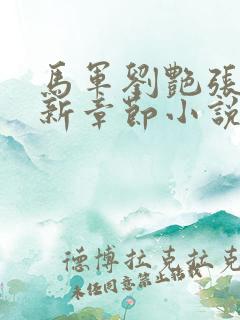 馬軍劉艷張
新章節小說
德博拉克拉克
未经同意禁止转载